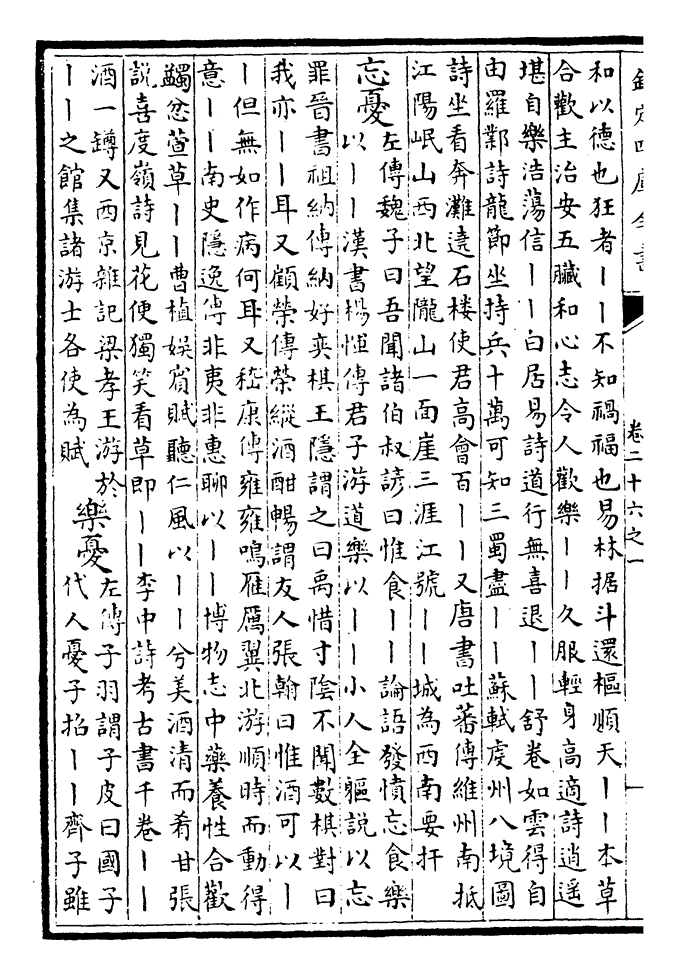 欽定四庫全書
卷二十六之一
和以德也狂者丨丨不知禍福也易林据斗還樞順天丨丨本草
合歡主治安五臟和心志令人歡樂丨丨久服輕身高適詩逍遥
堪自樂浩蕩信丨丨白居易詩道行無喜退丨丨舒卷如雲得自
由羅鄴詩龍節坐持兵十萬可知三蜀盡丨丨蘇軾虔州八境圖
詩坐看奔灘遶石楼使君高會百丨丨又唐書吐蕃傳維州南抵
江陽岷山西北望隴山一面崖三涯江號丨丨城為西南要扞
忘憂
左傳魏子曰吾聞諸伯叔諺曰惟食丨丨論語發憤忘食樂
以丨丨漢書楊惲傳君子游道樂以丨丨小人全軀説以忘
罪晉書祖納傳納好奕棋王隱謂之曰禹惜寸陰不聞數棋對曰
我亦丨丨耳又顧榮傳榮縱酒酣暢謂友人張翰曰惟酒可以丨
丨但無如作病何耳又嵇康傳雍雍鳴雁厲翼北游順時而動得
意丨丨南史隱逸傳非夷非惠聊以丨丨博物志中藥養性合歡
蠲忿萱草丨丨曹植娱賓賦聽仁風以丨丨兮美酒清而肴甘張
説喜度嶺詩見花便獨笑看草即丨丨李中詩考古書千卷丨丨
酒一罇又西京雜記梁孝王游於
丨丨之館集諸游士各使為賦
樂憂
左傳子羽謂子皮曰國子
代人憂子招丨丨齊子雖